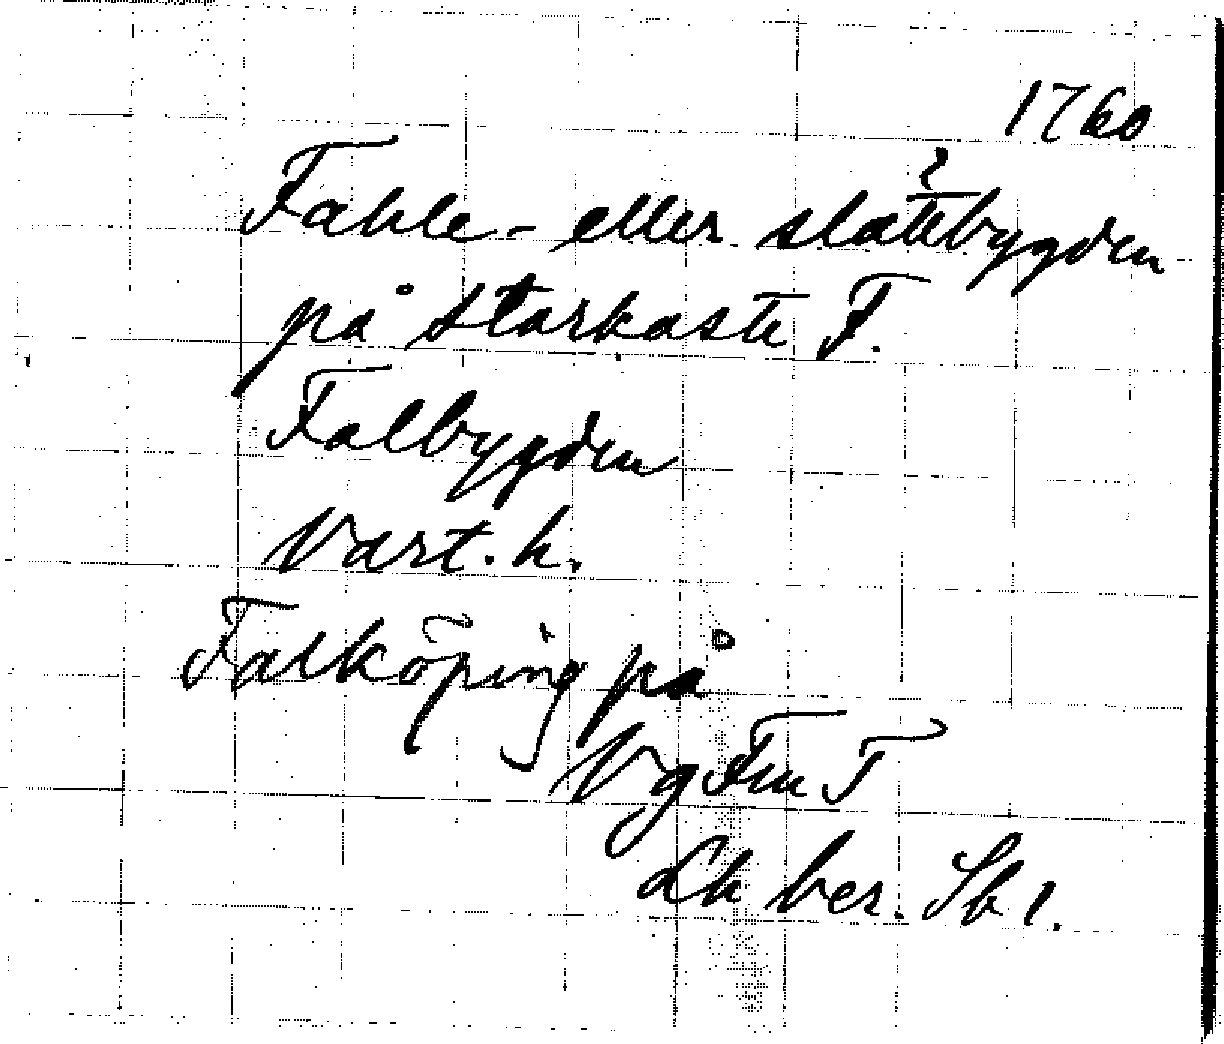 1760
Fahle- eller slättebygden
på starkaste F.
Falbygden
Vart. h.
Falköping på
Vg Fm T
Lh ber. Sb 1.